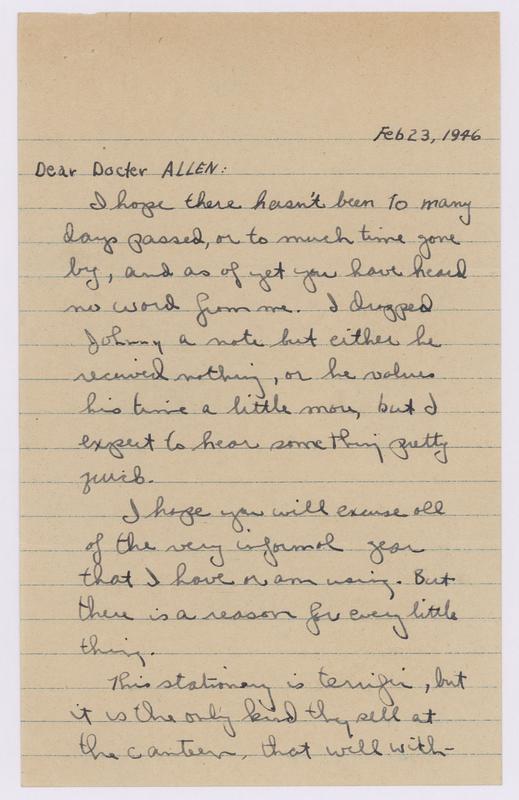 Feb 23, 1946
Dear Docter ALLEN:
I hope there hasn't been to many
days passed, or to much time gone
by, and as of yet you have heard
no word from me. I dropped
Johnny a note but either he
received nothing, or he values
his time a little more, but I
expect to hear something pretty
quick.
I hope you will excuse all
of the very informal gear
that I have or am using. But
there is a reason for every little
thing.
This stationery is terrific, but
it is the only kind they sell at
the canteen, that will with-